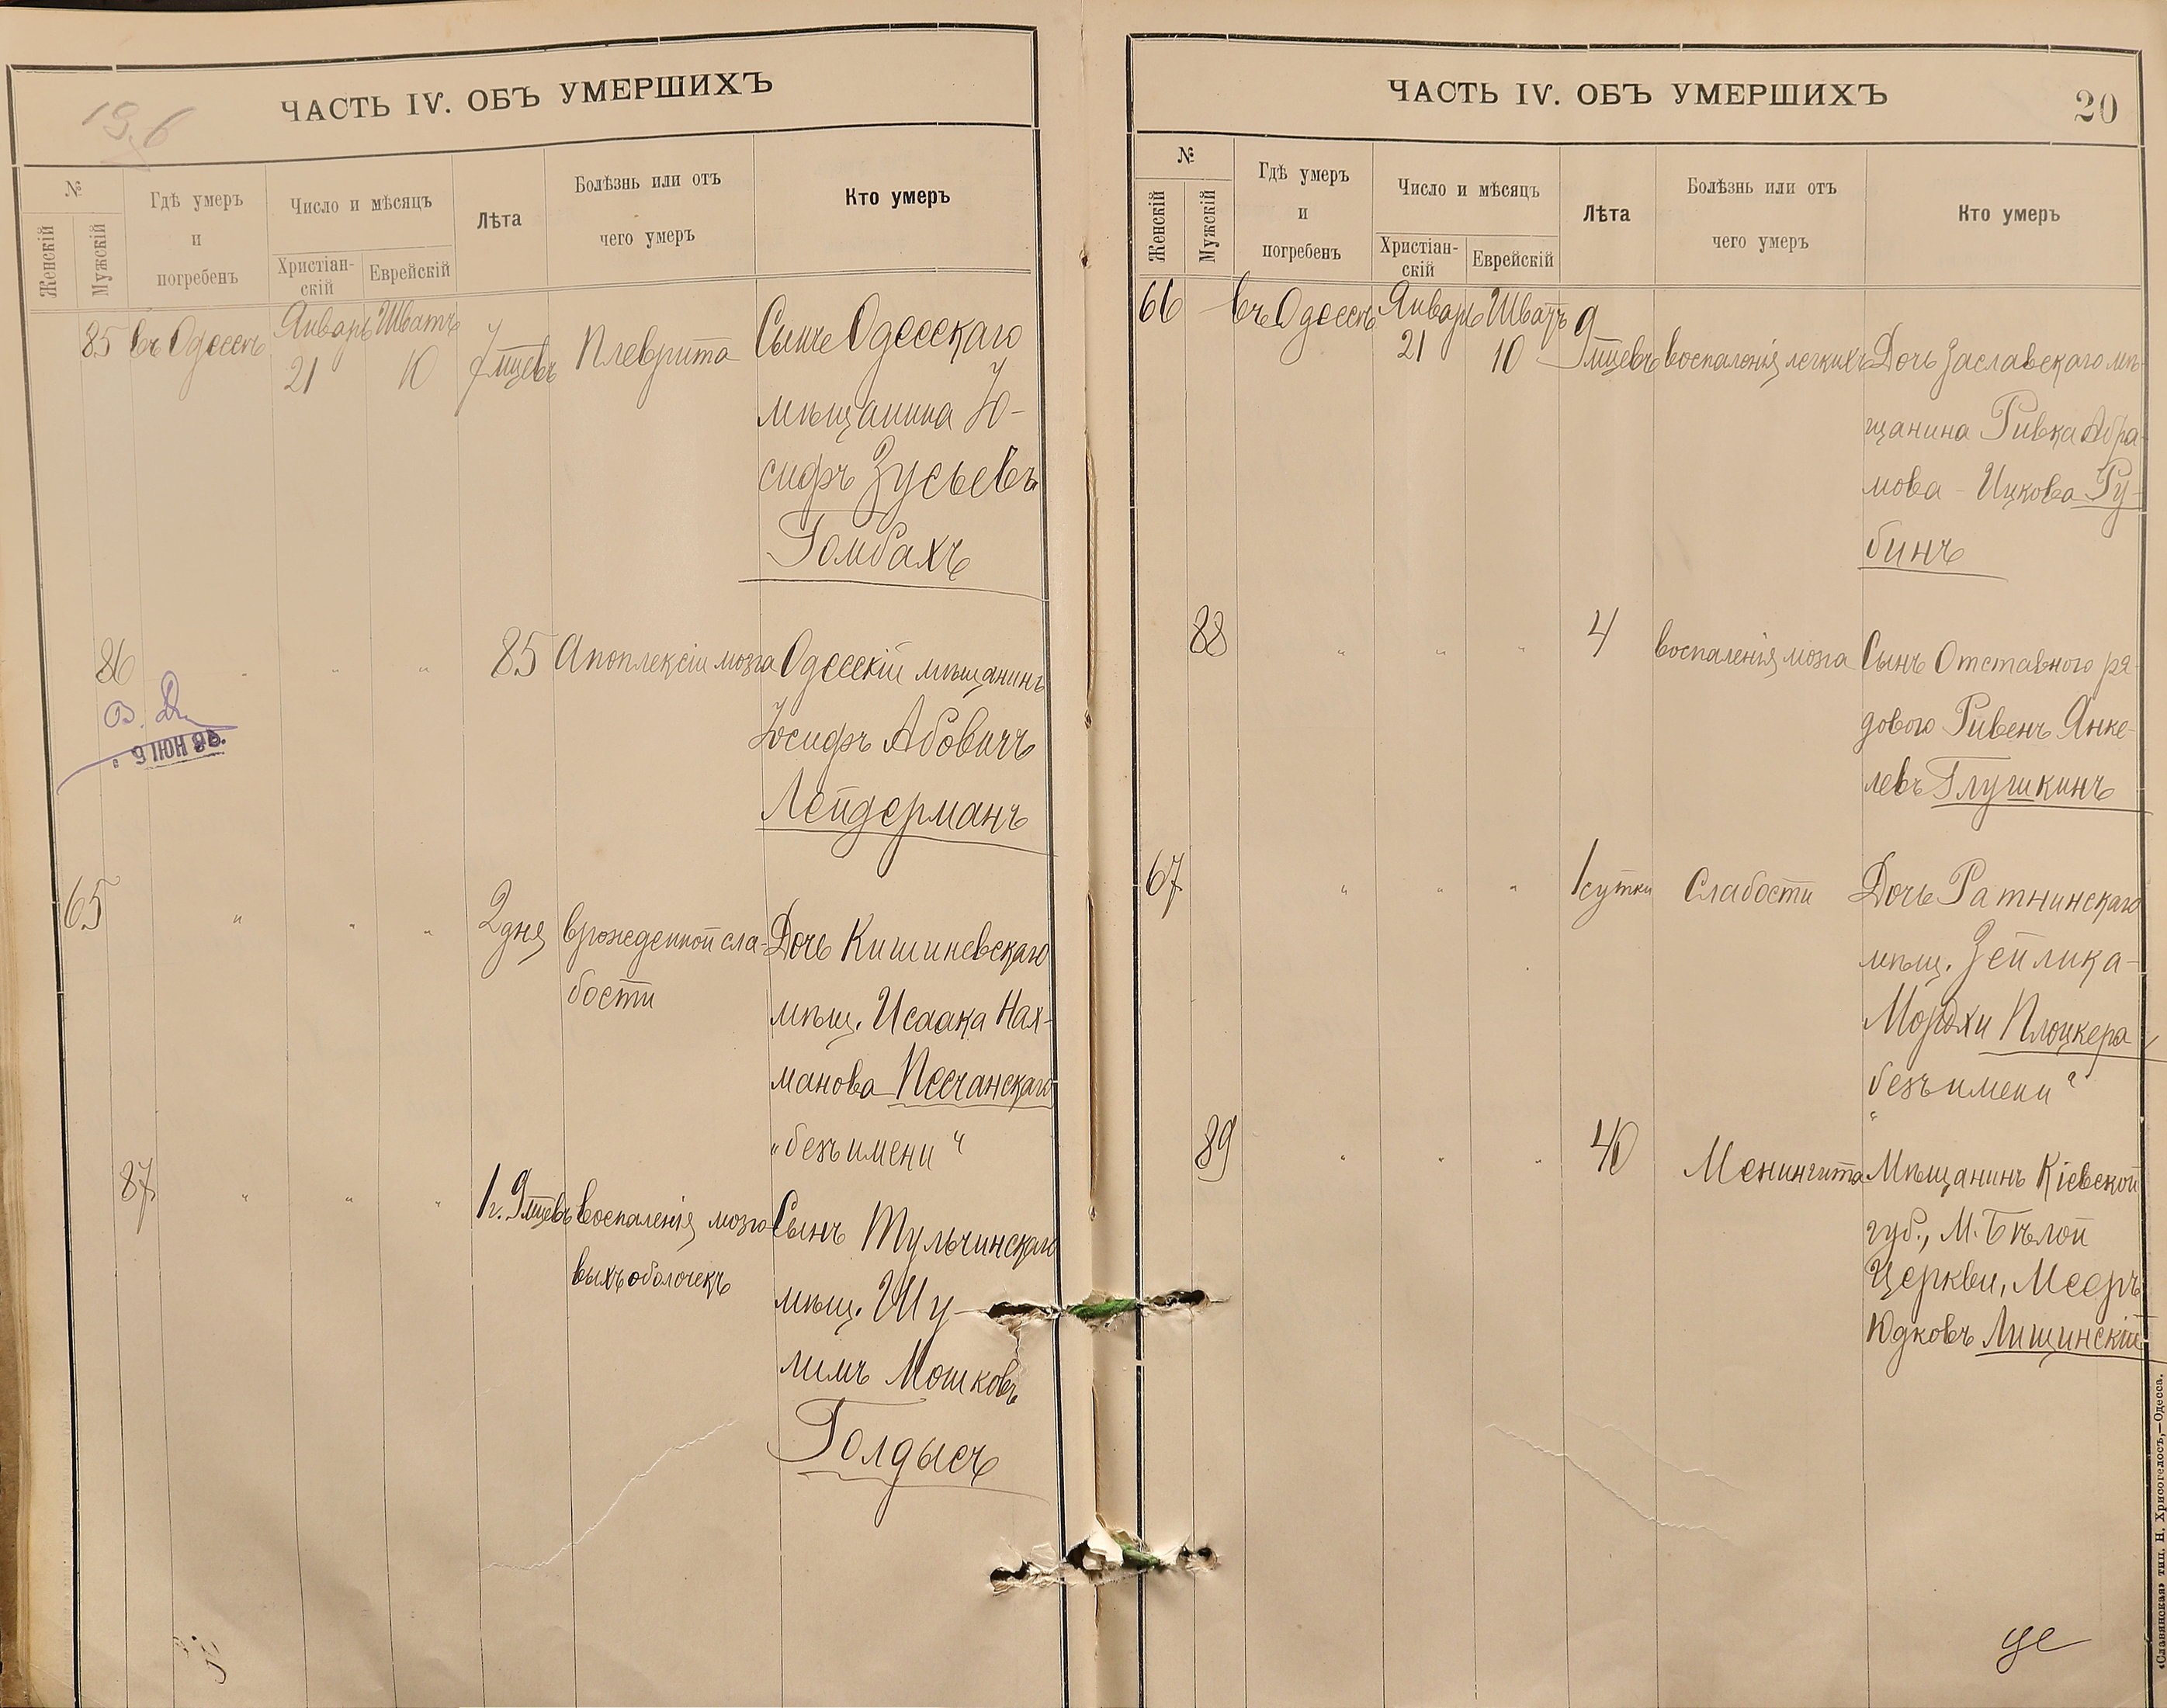 ЧАСТЬ IV. ОБЪ УМЕРШИХЪ
№
Женскій
Мужскій
Гдѣ умеръ
и
погребенъ
Число и мѣсяцъ
Христіан-
скій
Еврейскій
Лѣта
Болѣзнь или отъ
чего умеръ
Кто умеръ
85 въ Одессѣ Январь 21 Шватъ 10 7 мцевъ Плеврита Сынъ Одесскаго
мѣщанина Іо-
сифъ Зусьевъ
Гомбахъ
86 " " " 85 Апоплексіи мозга Одесскій мѣщанинъ
Іосифъ Абовичъ
Лейдерманъ
9 ІЮН 98.
65 " " " 2 дня врожденной сла- Дочь Кишиневскаго
бости мѣщ. Исаака Нах-
манова Песчанскаго
„безъ имени“
87 " " " 1 г. 9 мцевъ воспаленія мозго Сынъ Тульчинскаго
выхъ оболочекъ мѣщ. Шу-
лимъ Мошковъ
Голдысъ
ЧАСТЬ IV. ОБЪ УМЕРШИХЪ
20
№
Женскій
Мужскій
Гдѣ умеръ
и
погребенъ
Число и мѣсяцъ
Христіан-
скій
Еврейскій
Лѣта
Болѣзнь или отъ
чего умеръ
Кто умеръ
66 въ Одессѣ Январь 21 Шватъ 10 9 мцевъ воспаленія легкихъ Дочь Заславскаго мѣ-
щанина Ривка Абра-
мова-Ицкова Ру-
бинъ
88 " " " 4 воспаленія мозга Сынъ Отставного ря-
дового Ривенъ Янке-
левъ Глушкинъ
67 " " " 1 сутки Слабости Дочь Ратнинскаго
мѣщ. Зейлика-
Мордхи Плоцкера
„безъ имени“
89 " " " 40 Менингита Мѣщанинъ Кіевской
губ., М. Бѣлой
Церкви, Мееръ
Юдковъ Лищинскій
«Славянская» тип. Н. Хрисогелосъ,—Одесса.